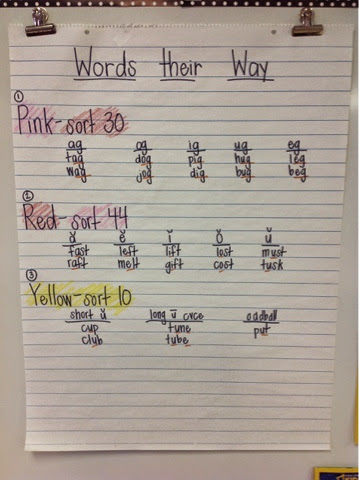 Words their Way
①
Pink-sort 30
ag og ig ug eg
tag dog pig hug leg
wag jog dig bug beg
②
Red-sort 44
ă ĕ ĭ ŏ ŭ
fast left lift lost must
raft melt gift cost tusk
③
Yellow-sort 10
short ŭ long ū cvce oddball
cup tune put
club tube